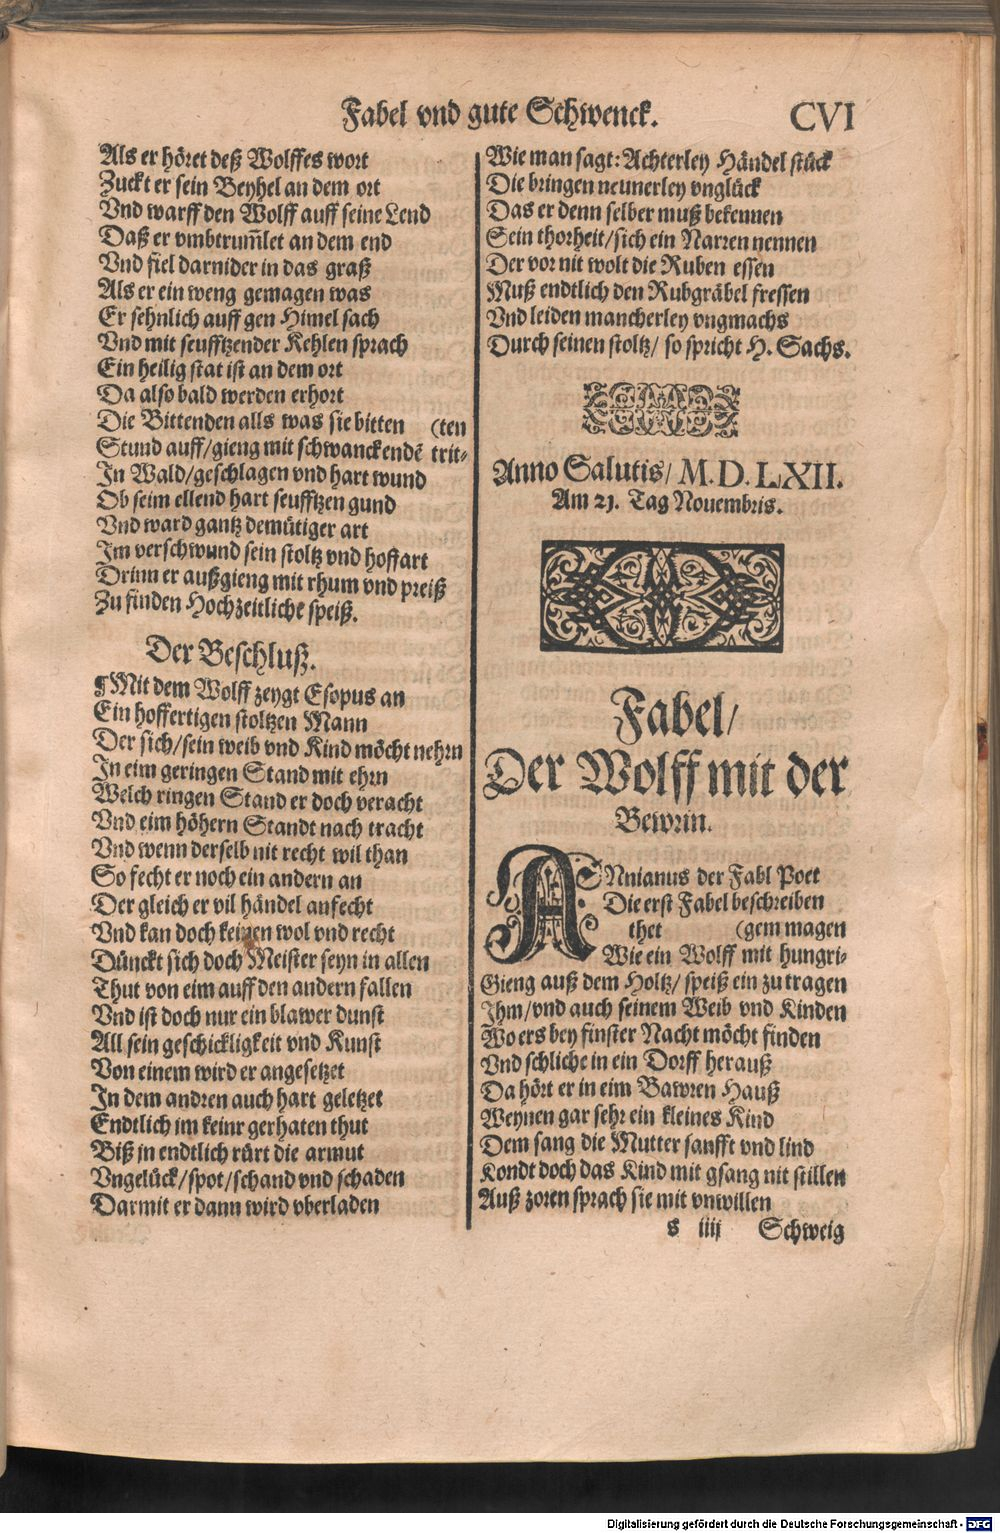 Fabel vnd gute Schwenck. CVI
Als er höret deß Wolffes wort
Zuckt er sein Beyhel an dem ort
Vnd warff den Wolff auff seine Lend
Daß er vmbtrum̃let an dem end
Vnd fiel darnider in das graß
Als er ein weng gemagen was
Er sehnlich auff gen Himel sach
Vnd mit seufftzender Kehlen sprach
Ein heilig stat ist an dem ort
Da also bald werden erhort
Die Bittenden alls was sie bitten (ten
Stund auff/gieng mit schwanckendẽ trit-
In Wald/geschlagen vnd hart wund
Ob seim ellend hart seufftzen gund
Vnd ward gantz demütiger art
Im verschwund sein stoltz vnd hoffart
Drinn er außgieng mit rhum vnd preiß
Zu finden Hochzeitliche speiß.
Der Beschluß.
¶Mit dem Wolff zeygt Esopus an
Ein hoffertigen stoltzen Mann
Der sich/sein weib vnd Kind möcht nehrn
In eim geringen Stand mit ehrn
Welch ringen Stand er doch veracht
Vnd eim höhern Standt nach tracht
Vnd wenn derselb nit recht wil than
So fecht er noch ein andern an
Der gleich er vil händel anfecht
Vnd kan doch keinen wol vnd recht
Dünckt sich doch Meister seyn in allen
Thut von eim auff den andern fallen
Vnd ist doch nur ein blawer dunst
All sein geschickligkeit vnd Kunst
Von einem wird er angesetzet
In dem andren auch hart geletzet
Endtlich im keinr gerhaten thut
Biß in endtlich rürt die armut
Vngelück/spot/schand vnd schaden
Darmit er dann wird vberladen
Wie man sagt: Achterley Händel stück
Die bringen neunerley vnglück
Das er denn selber muß bekennen
Sein thorheit/sich ein Narren nennen
Der vor nit wolt die Ruben essen
Muß endtlich den Rubgräbel fressen
Vnd leiden mancherley vngmachs
Durch seinen stoltz/ so spricht H. Sachs.
Anno Salutis/ M. D. LXII.
Am 21. Tag Nouembris.
Fabel/
Der Wolff mit der
Bewrin.
ANnianus der Fabl Poet
Die erst Fabel beschreiben
thet (gem magen
Wie ein Wolff mit hungri-
Gieng auß dem Holtz/ speiß ein zu tragen
Ihm/vnd auch seinem Weib vnd Kinden
Wo ers bey finster Nacht möcht finden
Vnd schliche in ein Dorff herauß
Da hört er in eim Bawren Hauß
Weynen gar sehr ein kleines Kind
Dem sang die Mutter sanfft vnd lind
Kondt doch das Kind mit gsang nit stillen
Auß zoren sprach sie mit vnwillen
s iiij Schweig
Digitalisierung gefördert durch die Deutsche Forschungsgemeinschaft - DFG